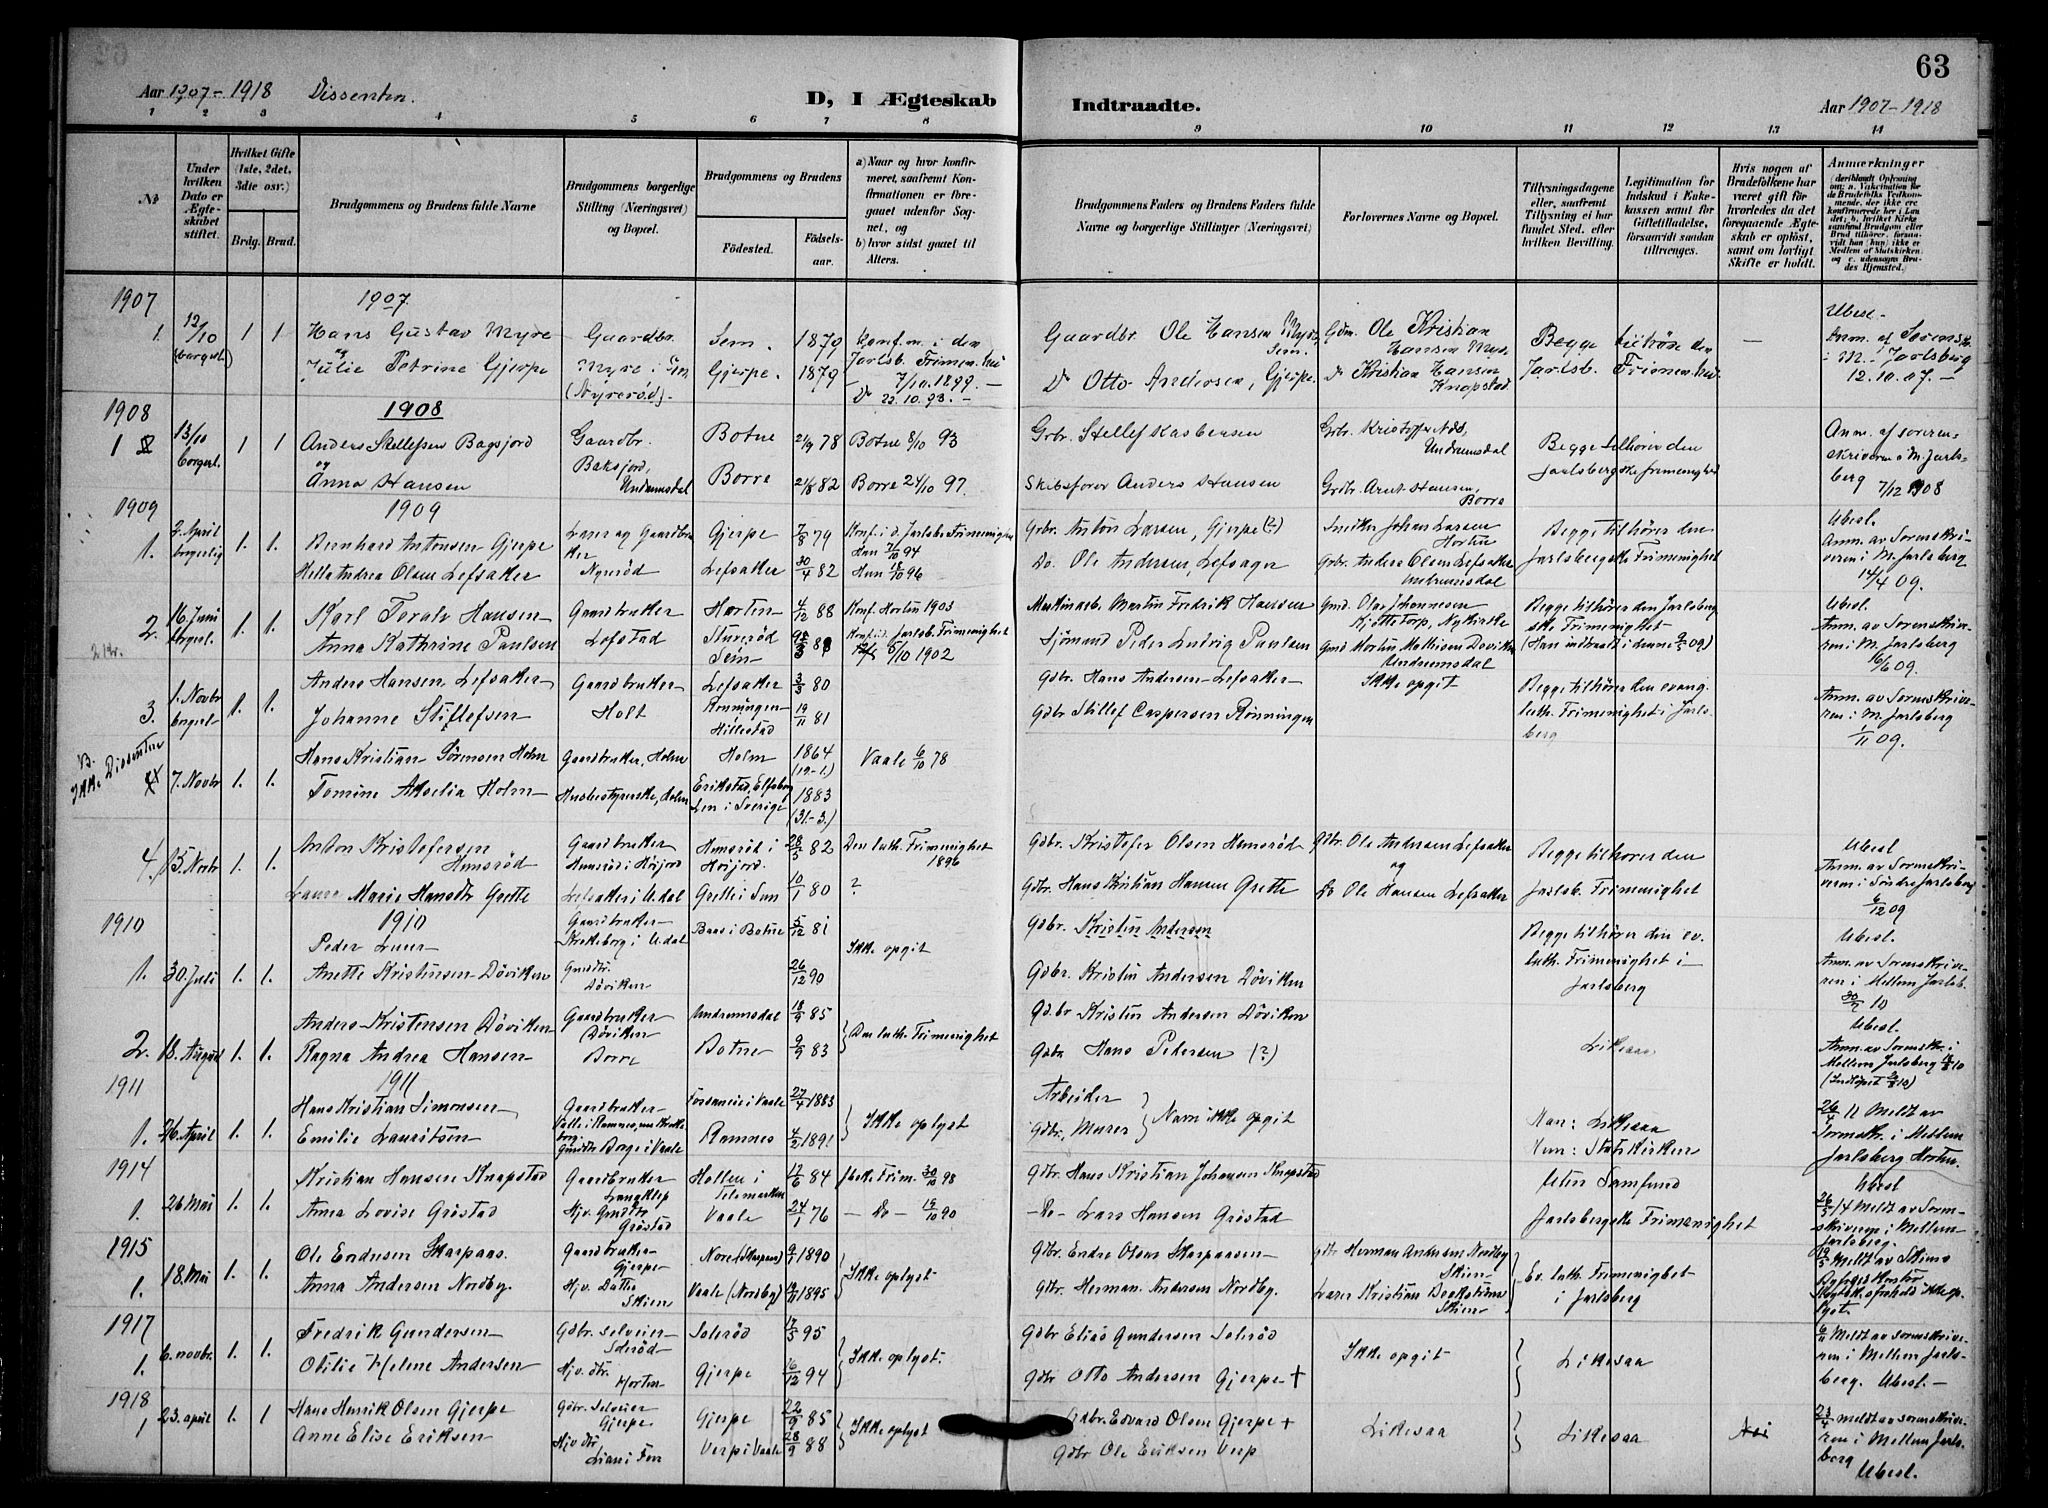 63
Aar 1907-1918 Dissenter.
D, I Ægteskab
Indtraadte.
Aar 1907-1918
1 2 3 4 5 6 7 8
9 10 11 12 13 14
№
Under hvilken Dato er Ægteskabet stiftet.
Hvilket Gifte (1ste, 2det, 3die osv.)
Brdg. Brud.
Brudgommens og Brudens fulde Navne
Brudgommens borgerlige Stilling (Næringsvei) og Bopæl.
Brudgommens og Brudens
Fødested.
Fødselsaar.
a) Naar og hvor konfirmeret, saafremt Konfirmationen er foregaaet udenfor Sognet, og
b) hvor sidst gaaet til Alters.
Brudgommens Faders og Brudens Faders fulde Navne og borgerlige Stillinger (Næringsvei)
Forlovernes Navne og Bopæl.
Tillysningsdagene eller, saafremt Tillysning ei har fundet Sted, efter hvilken Bevilling.
Legitimation for Indskud i Enkekassen samt for Giftetilladelse, forsaavidt saadan tiltrænges.
Hvis nogen af Brudefolkene har været gift før hvorledes da det foregaaende Ægteskab er opløst, samt om lovligt Skifte er holdt.
Anmærkninger
1907
1907
1. 12/10 (borgerl.) 1 1
Hans Gustav Myre
og
Julie Petrine Gjerpe
Gaardbr. Myre i Sem (Nyrerød).
Sem. 1879
Gjerpe. 1879
Konf. m. i den Jarlsb. Frimen.
7/10. 1899.
Do 22. 10. 93.
Gaardbr. Ole Hansen Myre, Sem.
Do Otto Andersen, Gjerpe.
Gdm. Ole Kristian Hansen Myre
Do Kristian Hansen Knapstad
Begge tilhøre den Jarlsb. Frimen.
—
Ubesl.
Anm. af Sorensk. i M. Jarlsberg 12.10.07.
1908
1908
1 13/10 borgerl. 1 1
Anders Skellefsen Bagsjord
og
Anna Hansen
Gaardbr. Baksjord, Undrumsdal
Botne 21/9 78 Botne 8/10 93
Borre 21/8 82 Borre 24/10 97.
Grbr. Stellef Kasbersen
Skibsfører Anders Hansen
Grbr. Kristoffer Næs, Undrumsdal
Grdbr. Arnt Hansen, Borre
Begge tilhører den Jarlsbergske frimenighed
Anm. af sorenskriveren i M. Jarlsberg 7/12 1908
1909
1909
1. 2. April borgerlig 1. 1.
Bernhard Antonsen Gjerpe
Hilla Andrea Olsen Lefsaker
Lærer og Gaardbruker Nyrerød
Gjerpe 7/8 79
Lefsaker 30/4 82
Konf. i d. Jarlsb. Frimenighet
Han 7/10 94
Hun 18/10 96
Grbr. Anton Larsen, Gjerpe (?)
Do. Ole Andersen, Lefsager
Snekker Johan Larsen Horten
Grbr. Anders Olsen Lefsaker Undrumsdal
Begge tilhører den Jarlsbergske Frimenighet
Ubesl.
Anm. av Sorenskriveren i M. Jarlsberg 14/4 09.
2. 16 Juni borgerl. 1. 1.
Karl Toralv Hansen
Anna Kathrine Paulsen
Gaardbruker Lofstad
Horten 4/12 88 Konf. Horten 1903
Stuverød Sem
Konf. i d. Jarlsb. Frimenighet 5/10 1902
Maskinarb. Martin Fredrik Hansen
Sjømand Peder Ludvig Paulsen
Gmd. Olav Johannesen Kjøttetorp, Nykirke
Gmd Morten Mathisen Døviken Undrumsdal
Begge tilhører den Jarlsbergske Frimenighet
(Han indtraadt i denne 9/5 09)
Ubesl.
Anm. av Sorenskriveren i M. Jarlsberg 16/6 09.
3. 1. Novbr borgerl. 1. 1.
Anders Hansen Lefsaker
Johanne Stillefsen
Gaardbruker Holt
Lefsaker 3/3 80
Rønningen Hillestad 19/11 81
Gdbr. Hans Andersen Lefsaker
Gdbr Skillef Caspersen Rønningen
Ikke opgit
Begge tilhører den evang. luth. Frimenighet i Jarlsberg
Anm. av Sorenskriveren i M. Jarlsberg 1/11 09.
NB. Ikke Dissenter
7. Novbr 1. 1.
Hans Kristian Sørensen Holm
Tomine Amelia Holm
Gaardbruker, Holm
Husbestyrerske, Holm
Holm 1864 (19-1.)
Erikstad, Elfsborg Len i Sverige 1883 (31.-3.)
Vaale 6/10 78
4. 15. Novbr 1. 1.
Anton Kristofersen Hemsrød
Laura Marie Hansdtr Grette
Gaardbruker Hemsrød i Høijord
Lefsaker i U.dal
Hemsrød i Høijord. 28/5 82
Grette i Sem 10/1 80
Den luth. Frimenighet 1896
?
Gdbr. Kristofer Olsen Hemsrød
Gdbr. Hans Kristian Hansen Grette
Gdbr. Ole Andersen Lefsaker
og
Do Ole Hansen Lefsaker
Begge tilhører den Jarlsb. Frimenighet
Ubesl.
Anm. av Sorenskriveren i Søndre Jarlsberg 6/12 09
1910
1910
1. 30. Juli 1. 1.
Peder Laur
Anette Kristensen Døviken
Gaardbruker Krekeborg i U.dal
Gmdtr. Døviken
Baas i Botne 5/12 81
26/12 90
Ikke opgit
Gdbr. Kristen Andersen
Gdbr. Kristen Andersen Døviken
Begge tilhører den ev. luth. Frimenighet i Jarlsberg
Ubesl.
Anm. av Sorenskriveren i Mellem Jarlsb. 30/7 10
2. 18. August 1. 1.
Anders Kristensen Døviken
Ragna Andrea Hansen
Gaardbruker Døviken
Borre
Undrumsdal 18/9 85
Botne 9/9 83
Den luth. Frimenighet
Gdbr Kristen Andersen Døviken
Gdbr Hans Pedersen (?)
Likesaa
Ubesl.
Anm. av Sorenskr. i Mellem Jarlsberg 18/8 10
1911
1911
1. 26. April 1. 1.
Hans Kristian Simonsen
Emilie Lauritsen
Gaardbruker
Gmdtr Borge i Vaale
Fossaneie i Vaale 27/4 1883
Ramnes 4/2 1891
Ikke oplyst
Arbeider
Gdbr, Murer
Navn ikke opgit
Man: Likesaa
Hun: Statskirken
26/4 11 Meldt av Sorenskr. i Mellem Jarlsberg Horten.
1914
1. 26 Mai 1. 1.
Kristian Hansen Knapstad
Anna Lovise Gröstad
Gaardbruker Langklep
Hjv. Gmdtr Gröstad
Hollen i Telemarken 17/6 84
Vaale 24/1 76
Jarlsb. Frim. 30/10 98
— Do — 19/10 90
Gdbr. Hans Kristian Johansen Knapstad
— Do — Lars Hansen Gröstad
Uten Samfund
Jarlsbergske Frimenighet
Ubesl
26/5 14 Meldt av Sorenskriveren i Mellem Jarlsberg.
1915
1. 18. Mai 1. 1.
Ole Endresen Skarpaas.
Anna Andersen Nordby.
Gaardbruker Gjerpe
Hjv. Datter Skien
Nore (Skarpaas) 9/1 1890
Vaale (Nordby) 19/11 1895
Ikke oplyst
Gdbr. Endre Olsen Skarpaasen
Gdbr. Herman Andersen Nordby.
Gdbr Herman Andersen Nordby Skien
Ev. luth. Frimenighet i Jarlsberg
19/5 Meldt av Skiens Byfogdkontor
1917
1. 6. novbr. 1. 1.
Fredrik Gundersen
Otilie Helene Andersen
Gdbr. selveier Solerød
Hjv. dtr. Horten
Solerød 17/5 95
Gjerpe 16/12 94
Ikke oplyst.
Gdbr Elias Gundersen Solerød
Gdbr Otto Andersen Gjerpe +
Ikke opgit
Likesaa
6/11 Meldt av sorenskriveren i Mellem Jarlsberg. Ubesl. —
1918
1 23. april 1. 1
Hans Henrik Olsen Gjerpe
Anne Elise Eriksen
Gdbr. Selveier Gjerpe
Hjv dtr.
Gjerpe 22/9 85
Verp i Vaale 28/9 88
Ikke oplyst
Gdbr. Edvard Olsen Gjerpe +
Gdbr Ole Eriksen Verp
Likesaa
Likesaa
Nei
23/4 meldt av sorenskriveren i Mellem Jarlsberg
Ubesl.